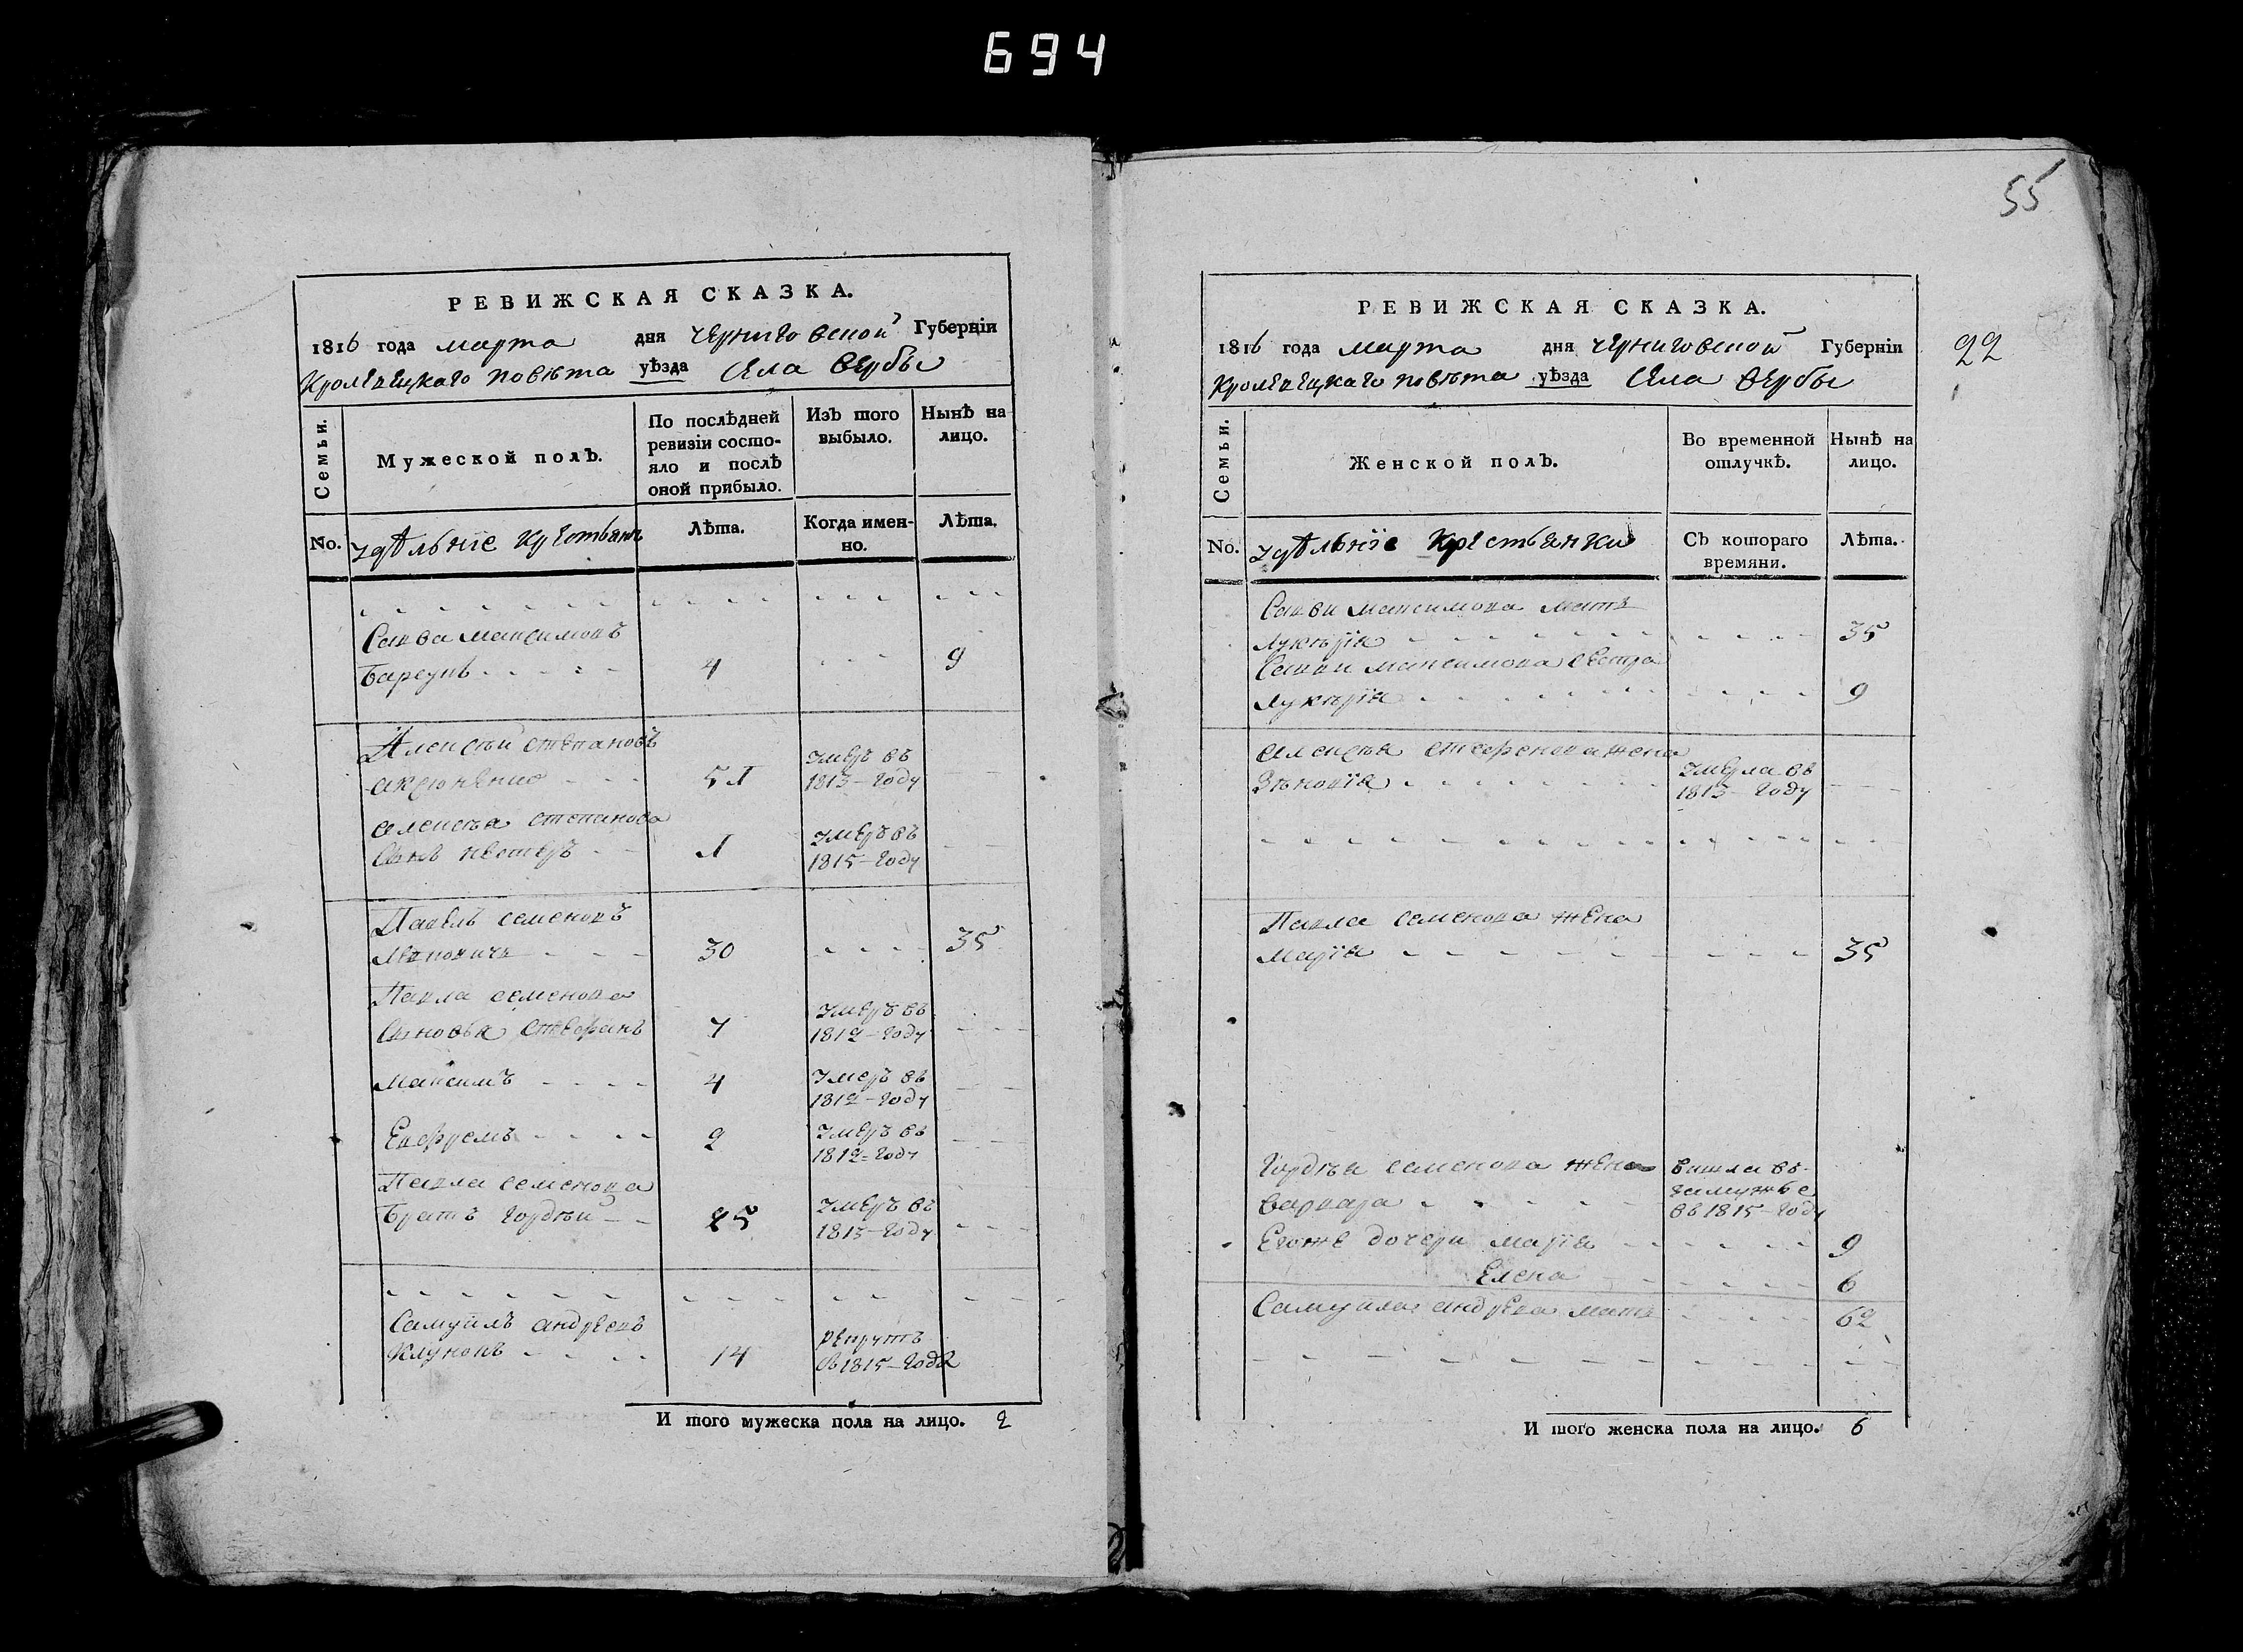 694
РЕВИЖСКАЯ СКАЗКА.
1816 года марта дня черниговской Губерніи
Кролевецкаго повѣта уѣзда села вербы
Семьи.
Мужеской полъ.
По послѣдней ревизіи состо-
яло и послѣ
оной прибыло.
Изъ того
выбыло.
Нынѣ на
лицо.
No. удѣльніе крестьяне
Лѣта.
Когда имен-
но.
Лѣта.
Савва максимовъ
4 9
Алексѣй степановъ
51 умеръ въ
1813-году
алексѣя степанова
сынъ нестеръ 1 умеръ въ
1815-году
Павелъ семеновъ
30 35
Павла семенова
сыновья стефанъ 7 умеръ въ
1812-году
максимъ 4 умеръ въ
1812-году
Евфремъ 2 умеръ въ
1812-году
Павла семенова
братъ гордѣй 25 умеръ въ
1815-году
Самуйлъ андреевъ
14 рекрутъ
въ 1815-года
И того мужеска пола на лицо. 2
55
22
РЕВИЖСКАЯ СКАЗКА.
1816 года марта дня черниговской Губерніи
Кролевецкаго повѣта уѣзда села вербы
Семьи.
Женской полъ.
Во временной
отлучкѣ.
Нынѣ на
лицо.
No. удѣльніе крестьянки
Съ котораго
времяни.
Лѣта.
Савви максимова мать
лукѣрія 35
Савви максимова сестра
лукѣрія 9
алексѣя стефанова жена
Зѣновія умерла въ
1813-году
Павла семенова жена
марія 35
гордѣя семенова жена
варвара вишла въ
замужье
въ 1815-году
Егоже дочери марія 9
Елена 6
Самуйла андреева мать 62
И того женска пола на лицо. 6